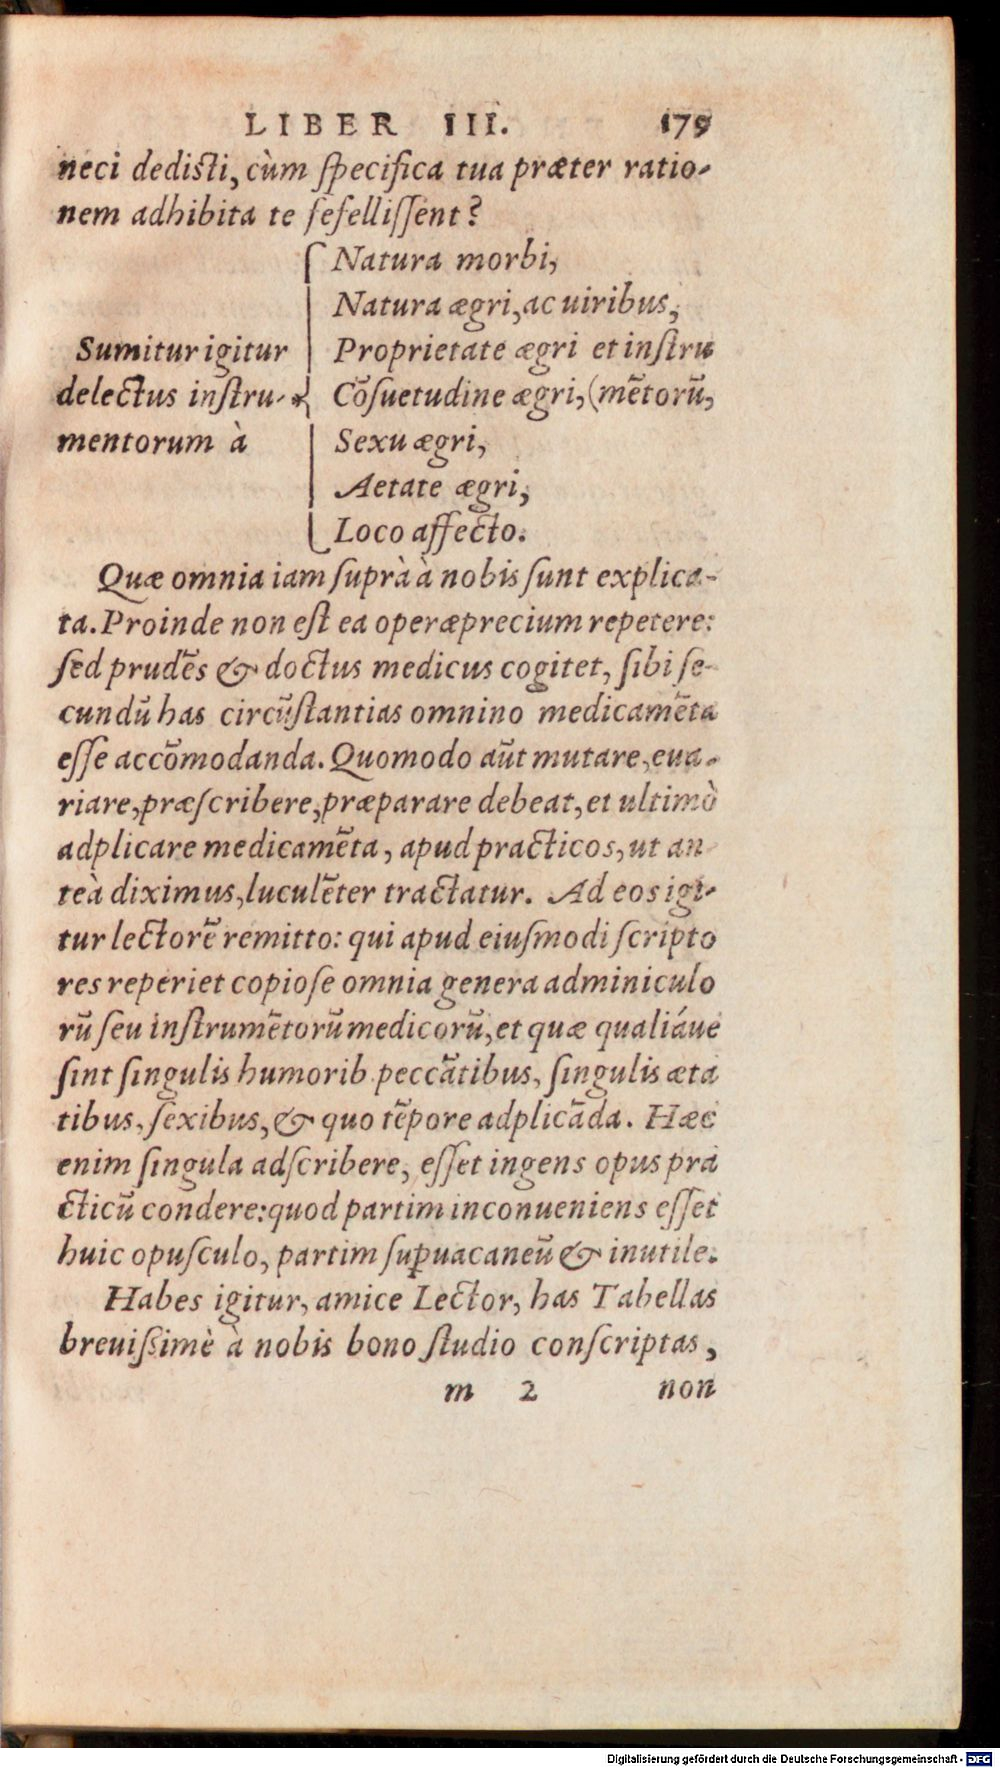 LIBER III. 179
neci dediſti, cùm ſpecifica tua præter ratio-
nem adhibita te fefelliſſent?
Natura morbi,
Natura ægri, ac uiribus,
Sumitur igitur Proprietate ægri et inſtru
delectus inſtru- Cõſuetudine ægri, (mẽtorũ,
mentorum à Sexu ægri,
Aetate ægri,
Loco affecto.
Quæ omnia iam ſuprà à nobis ſunt explica-
ta. Proinde non eſt ea operæprecium repetere:
ſed prudẽs & doctus medicus cogitet, ſibi ſe-
cundũ has circũſtantias omnino medicamẽta
eſſe accõmodanda. Quomodo aũt mutare, eua-
riare, præſcribere, præparare debeat, et ultimò
adplicare medicamẽta, apud practicos, ut an-
teà diximus, luculẽter tractatur. Ad eos igi-
tur lectorẽ remitto: qui apud eiuſmodi ſcripto
res reperiet copioſe omnia genera adminiculo
rũ ſeu inſtrumẽtorũ medicorũ, et quæ qualiáue
ſint ſingulis humorib. peccãtibus, ſingulis æta
tibus, ſexibus, & quo tẽpore adplicãda. Hæc
enim ſingula adſcribere, eſſet ingens opus pra
cticũ condere: quod partim inconueniens eſſet
huic opuſculo, partim ſuꝑuacaneũ & inutile.
Habes igitur, amice Lector, has Tabellas
breuiſsimè à nobis bono ſtudio conſcriptas,
m 2 non
Digitalisierung gefördert durch die Deutsche Forschungsgemeinschaft - DFG